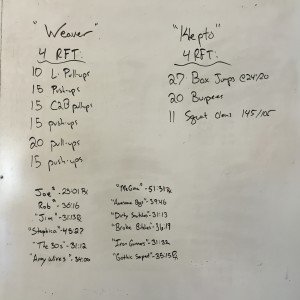 "Weaver"
4 RFT:
10 L-Pull-ups
15 Push-ups
15 C2B pullups
15 push-ups
20 pull-ups
15 push-ups
"Klepto"
4 RFT:
27 Box Jumps @24/20
20 Burpees
11 Squat Cleans 145/105
Joe" - 25:01 Rx
Rob" - 30:16
"Jim" - 31:13
"Stephica" - 45:27
"The 30's" - 31:12
"Army Wives" - 34:00
"McGinn" - 51:31 Rx
39:46
"Dirty 31:13
"Broke Bitches" 36:19
"Iron 31:32
"Gothic Squad" - 35:15